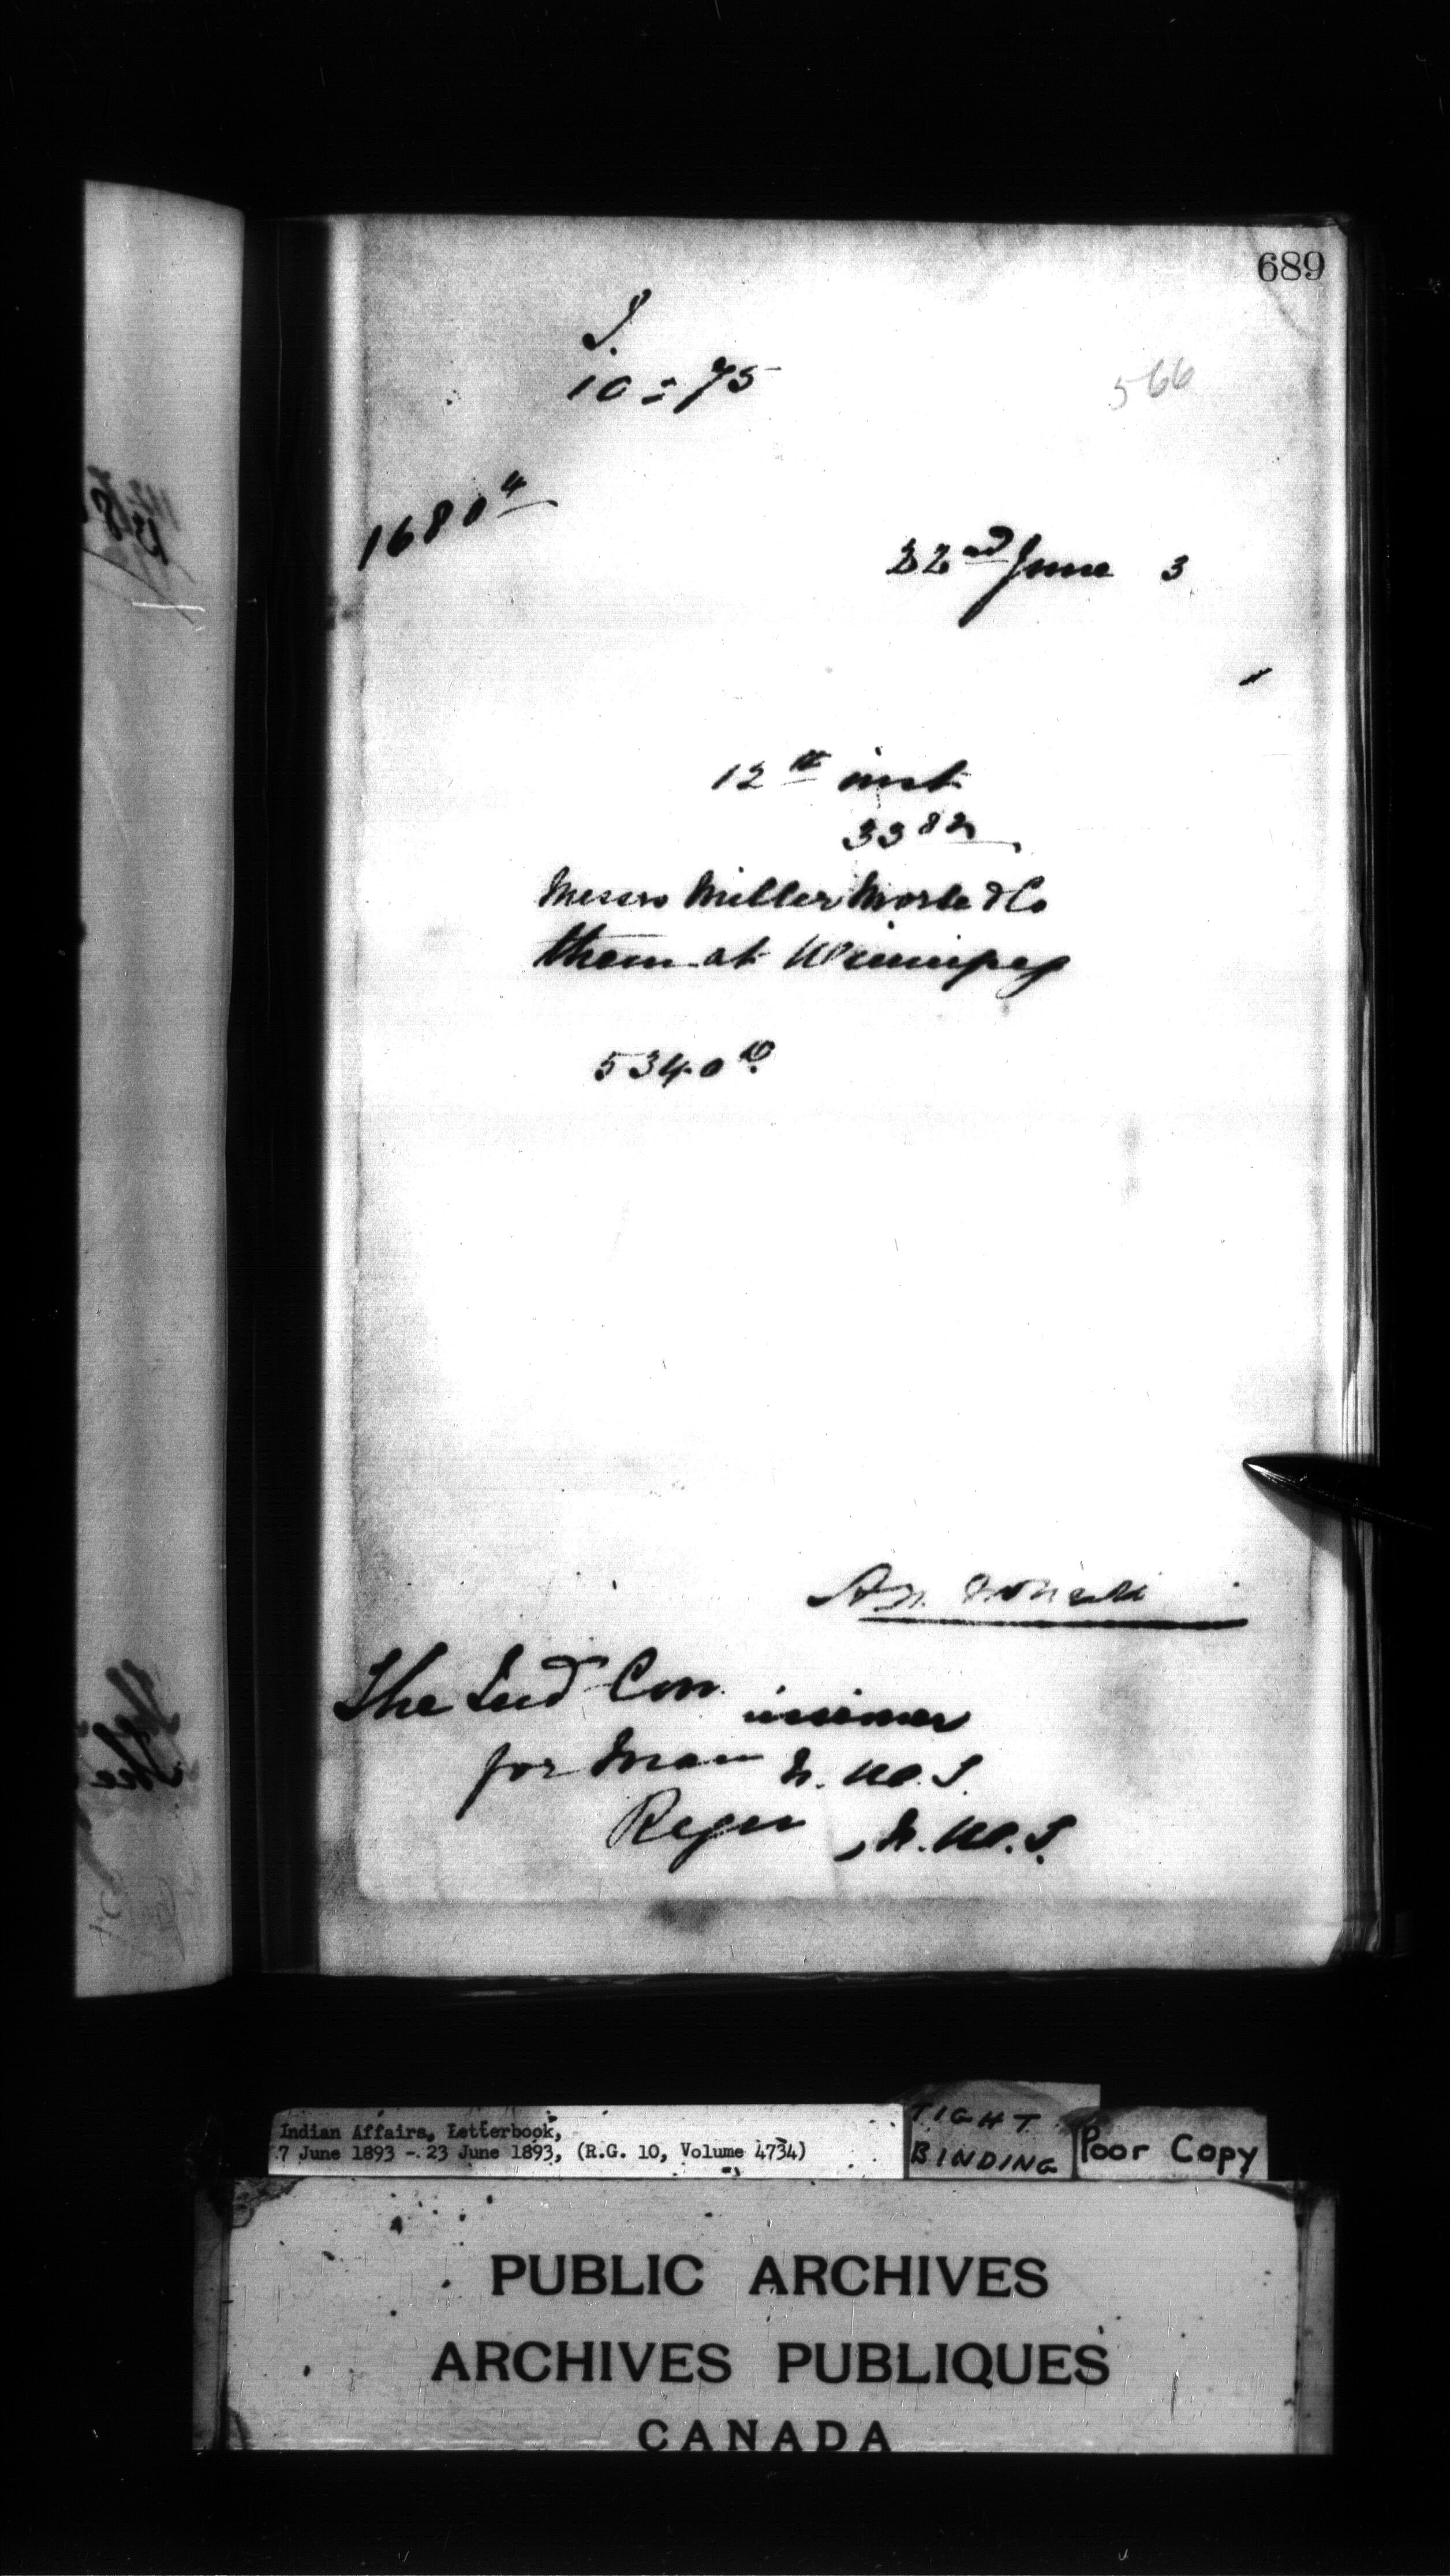 689
S.
10=75
566
1680 4
22nd June 3
12th inst
33 82
Messrs Miller Morse & Co
them at Winnipeg
5340 10
The Ind Com issioner
for Man N.W.T.
Regin , N.W.T.
Indian Affairs, Letterbook,
7 June 1893 - 23 June 1893, (R.G. 10, Volume 4734)
TIGHT
BINDING
Poor Copy
PUBLIC ARCHIVES
ARCHIVES PUBLIQUES
CANADA